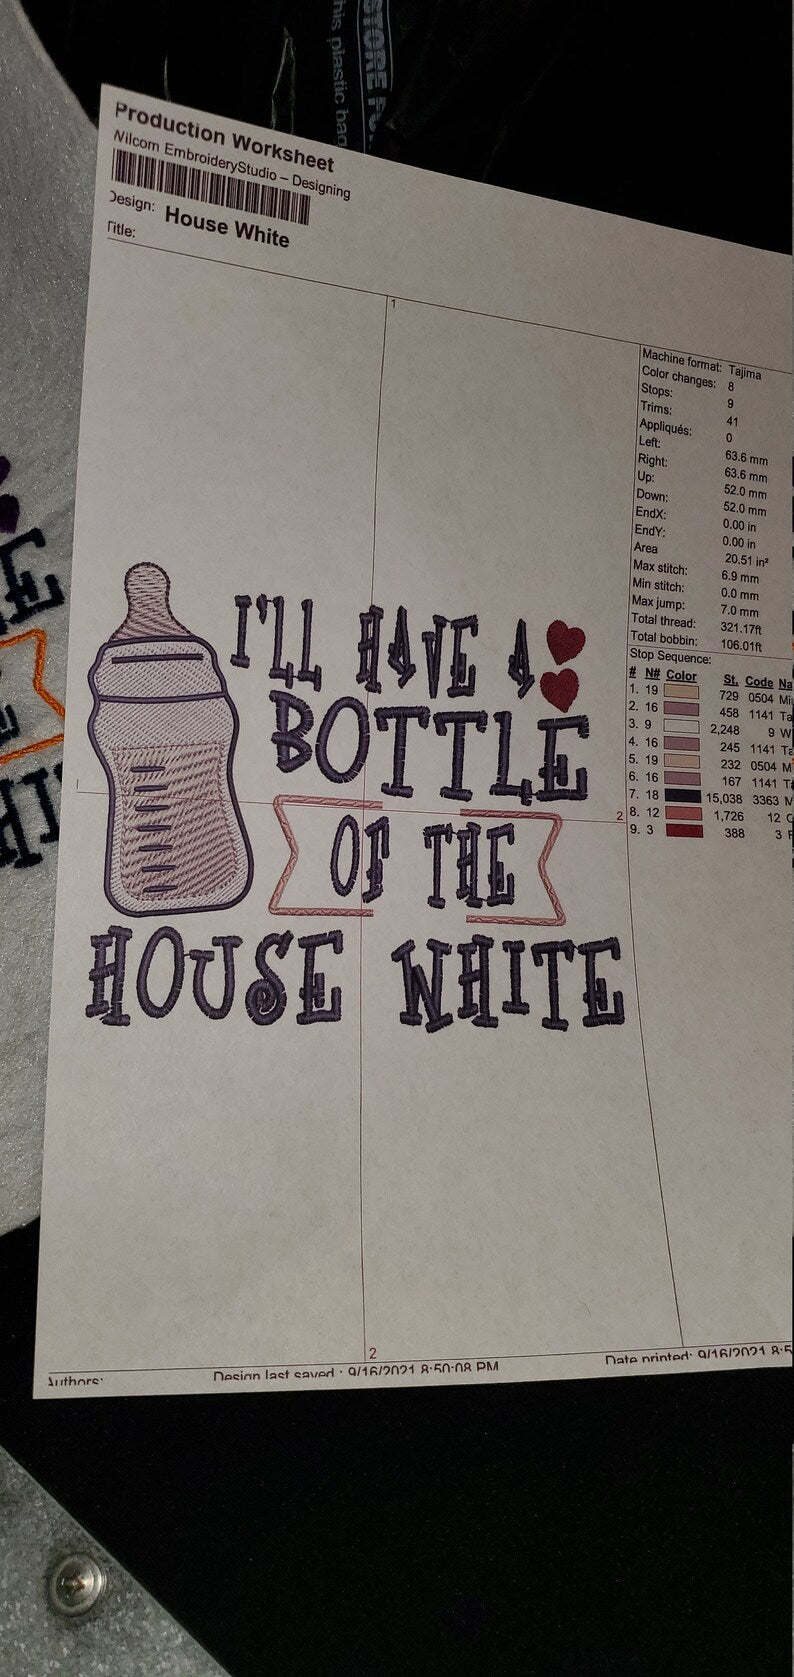 STORE FO
his plastic bag
Production Worksheet
Wilcom EmbroideryStudio – Designing
Design: House White
Title:
1
Machine format: Tajima
Color changes: 8
Stops: 9
Trims: 41
Appliqués: 0
Left: 63.6 mm
Right: 63.6 mm
Up: 52.0 mm
Down: 52.0 mm
EndX: 0.00 in
EndY: 0.00 in
Area 20.51 in²
Max stitch: 6.9 mm
Min stitch: 0.0 mm
Max jump: 7.0 mm
Total thread: 321.17ft
Total bobbin: 106.01ft
Stop Sequence:
# N# Color St. Code Na
1. 19 729 0504 Mi
2. 16 458 1141 Ta
3. 9 2,248 9 W
4. 16 245 1141 Ta
5. 19 232 0504 M
6. 16 167 1141 T
7. 18 15,038 3363 M
8. 12 1,726 12 C
9. 3 388 3 F
I'LL HAVE A
BOTTLE
1
2
OF THE
HOUSE WHITE
2
Authors:
Design last saved : 9/16/2021 8:50:08 PM
Date printed: 9/16/2021 8:5